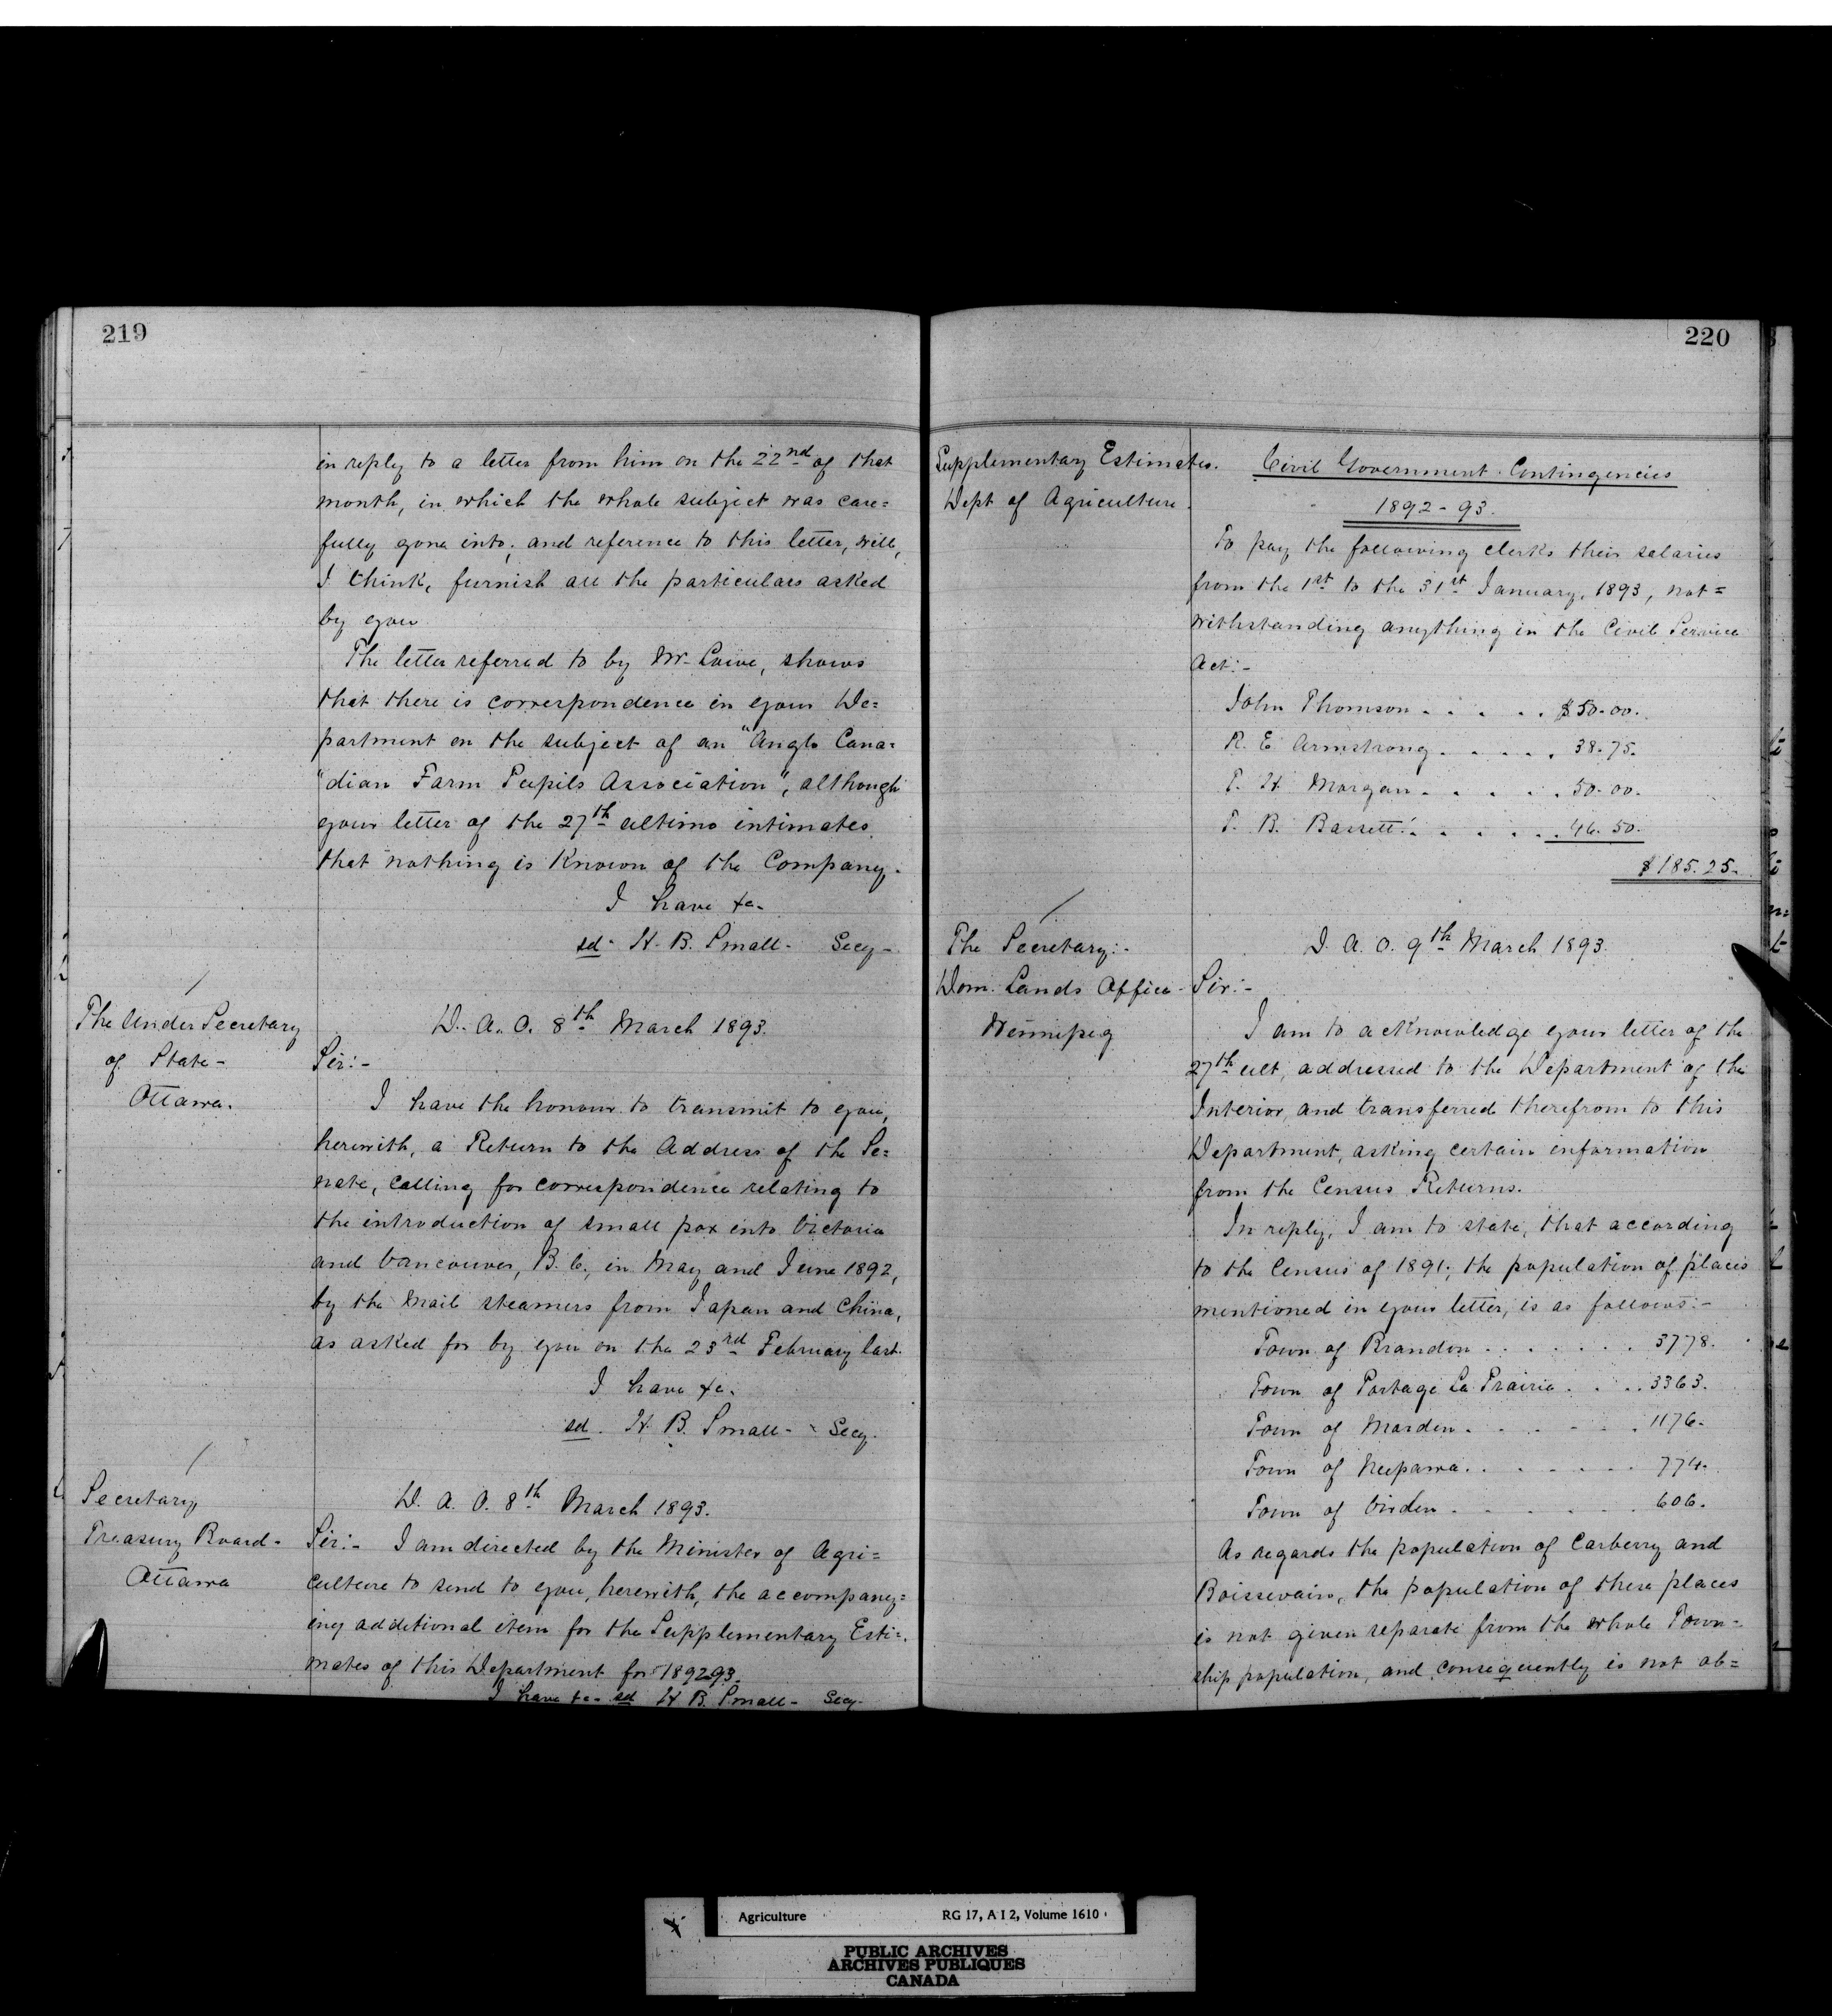 219
in reply to a letter from him on the 22nd of that
month, in which the whole subject was care=
fully gone into; and reference to this letter, will,
I think, furnish all the particulars asked
by you
The letter referred to by Mr. Lowe, shows
that there is correspondence in your De=
partment on the subject of an "Anglo Cana=
"dian Farm Pupils Association", although
your letter of the 27th ultimo intimates
that nothing is known of the Company.
I have &c.
sd. H. B. Small - Secy -
The Under Secretary
of State -
Ottawa.
D. A. O. 8th March 1893.
Sir:-
I have the honour to transmit to you,
herewith, a Return to the Address of the Se=
nate, calling for correspondence relating to
the introduction of small pox into Victoria
and Vancouver, B. C., in May and June 1892,
by the Mail steamers from Japan and China,
as asked for by you on the 23rd February last.
I have &c.
sd. H. B. Small - Secy.
Secretary
Treasury Board -
Ottawa
D. A. O. 8th March 1893.
Sir:- I am directed by the Minister of Agri=
culture to send to you, herewith, the accompany=
ing additional item for the Supplementary Esti=
mates of this Department for 1892-93.
I have &c. sd H B. Small - Secy.
220
Supplementary Estimates.
Dept of Agriculture.
Civil Government Contingencies
1892-93.
To pay the following clerks their salaries
from the 1st to the 31st January, 1893, not=
withstanding anything in the Civil Service
Act:-
John Thomson . . . . . $50.00.
R. E Armstrong . . . . . 38.75.
T. H Morgan . . . . . 50.00.
T. B. Bassett . . . . . 46.50.
$185.25.
The Secretary:-
Dom. Lands Office -
Winnipeg
D. A. O. 9th March 1893.
Sir:-
I am to acknowledge your letter of the
27th ult, addressed to the Department of the
Interior, and transferred therefrom to this
Department, asking certain information
from the Census Returns.
In reply, I am to state, that according
to the Census of 1891; the population of places
mentioned in your letter, is as follows:-
Town of Brandon . . . . . . . 3778.
Town of Portage La Prairie . . . . 3363.
Town of Morden . . . . . . 1176.
Town of Neepawa . . . . . . 774.
Town of Virden . . . . . . 606.
As regards the population of Carberry and
Boissevain, the population of these places
is not given separate from the whole Town=
ship population, and consequently is not ob=
Agriculture RG 17, A I 2, Volume 1610
PUBLIC ARCHIVES
ARCHIVES PUBLIQUES
CANADA